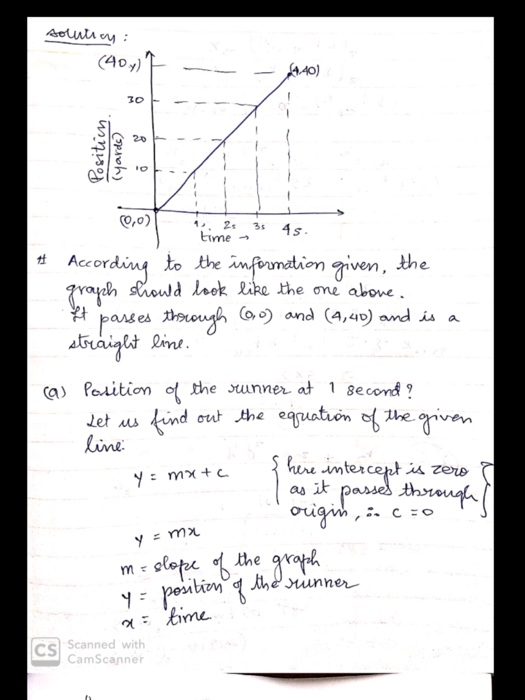 solution :
(40,y)
(4,40)
30
20
10
Position
(yards)
(0,0)
1s 2s 3s 4s.
time →
# According to the information given, the
graph should look like the one above.
It passes through (0,0) and (4,40) and is a
straight line.
(a) Position of the runner at 1 second?
Let us find out the equation of the given
line:
y = mx + c { here intercept is zero
as it passes through
origin, ∴ c = 0 }
y = mx
m = slope of the graph
y = position of the runner
x = time
CS Scanned with
CamScanner